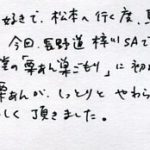 好きで、松本へ行く度、
今回、長野道 梓川SAで
堂の「栗あん巣ごもり」に初
栗あんが、しっとりと やわら
しく 頂きました。